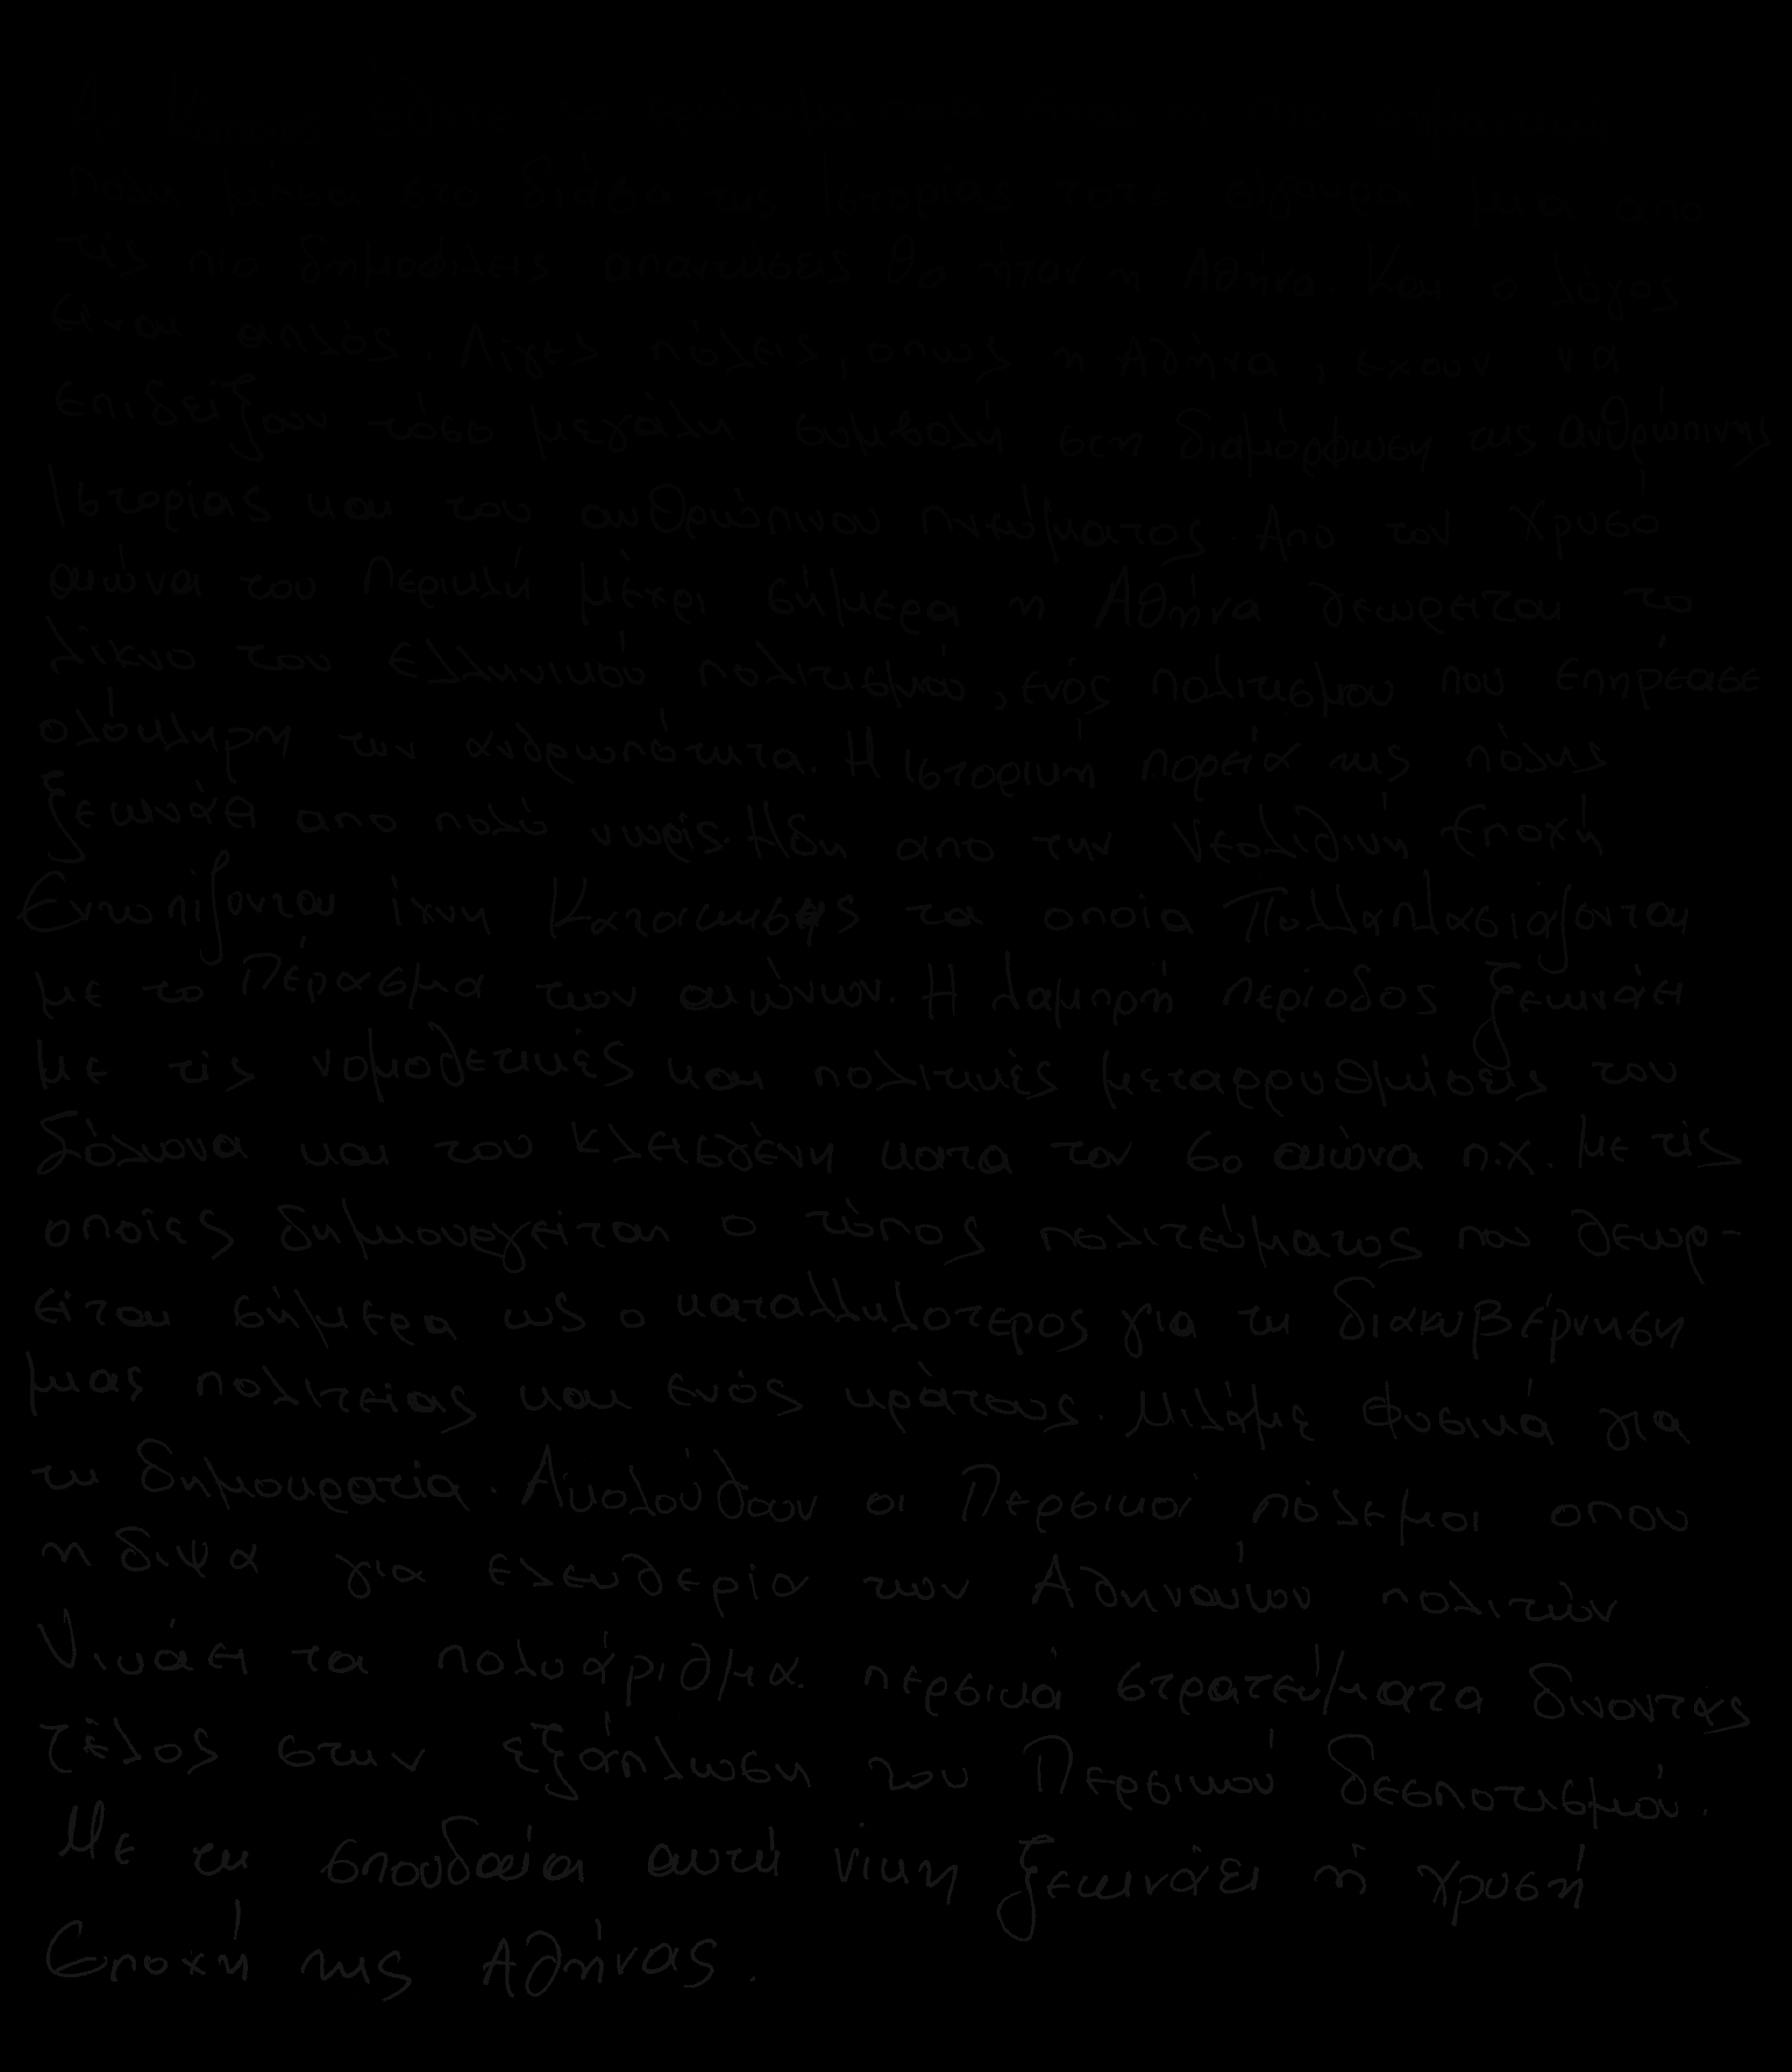 πολη μέσα στο διάβα της Ιστορίας τοτε σίγουρα μια απο
τις πιο δημοφιλεις απαντήσεις θα ήταν η Αθήνα. Και ο λόγος
ειναι απλός. Λίγες πόλεις, οπως η Αθήνα, εχουν να
επιδείξουν τόσο μεγάλη συμβολή στη διαμόρφωση της ανθρώπινης
Ιστορίας και του ανθρώπινου πνεύματος. Απο τον χρυσό
αιώνα του Περικλή μέχρι σήμερα η Αθήνα θεωρειται το
λίκνο του ελληνικού πολιτισμού, ενός πολιτισμου που επηρέασε
ολόκληρη την ανθρωπότητα. Η Ιστορικη πορεία της πόλης
ξεκινάει απο πολύ νωρίς. Ηδη απο την Νεολιθική Εποχή
Εντοπίζονται ίχνη Κατοικησης τα οποία Πολλαπλασιάζονται
με το Πέρασμα των αιώνων. Η λαμπρή περίοδος ξεκινάει
με τις νομοθετικές και πολιτικές μεταρρυθμίσεις του
Σόλωνα και του Κλεισθένη κατα τον 6ο αιώνα π.χ. με τις
οποίες δημιουργείται ο τύπος πολιτεύματος που θεωρ-
είται σήμερα ως ο καταλληλότερος για τη διακυβέρνηση
μιας πολιτείας και ενός κράτους. Μιλάμε φυσικά για
τη δημοκρατία. Ακολούθουν οι Περσικοί πόλεμοι οπου
η διψα για ελευθερία των Αθηναίων πολιτών
Νικάει τα πολυάριθμα περσικά στρατεύματα δινοντας
τέλος στην εξάπλωση του Περσικού δεσποτισμού.
Με τη σπουδαία αυτή νίκη ξεκινάει ή χρυσή
Εποχή της Αθήνας.